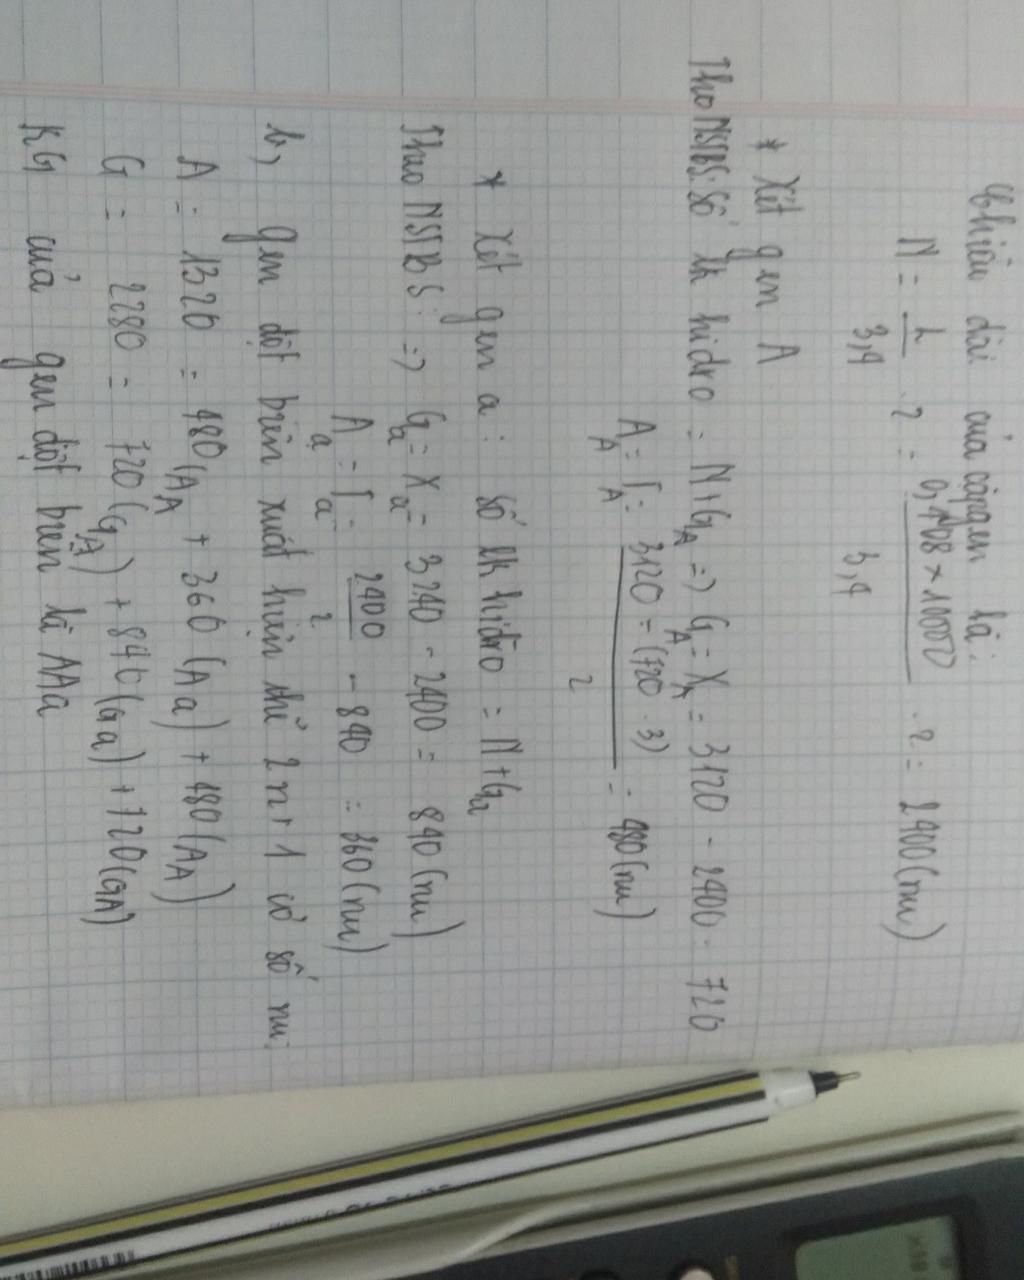 Chiều dài của cặp gen là:
N = L/3,4 . 2 = 0,408 × 10000/3,4 . 2 = 2400 (nu)
* Xét gen A
Theo NSTBS: Số lk hidro = N + G_A => G_A = X_A = 3120 - 2400 = 720
A_A = T_A = 3120 - (720 . 3)/2 = 480 (nu)
* Xét gen a: Số lk hiđro = N + G_a
Theo NSTBS: => G_a = X_a = 3240 - 2400 = 840 (nu)
A_a = T_a = 2400/2 - 840 = 360 (nu)
b, gen đột biến xuất hiện thể 2n+1 có số nu:
A = 1320 = 480 (A_A) + 360 (Aa) + 480 (A_A)
G = 2280 = 720 (G_A) + 840 (Ga) + 720 (GA)
KG của gen đột biến là AAa